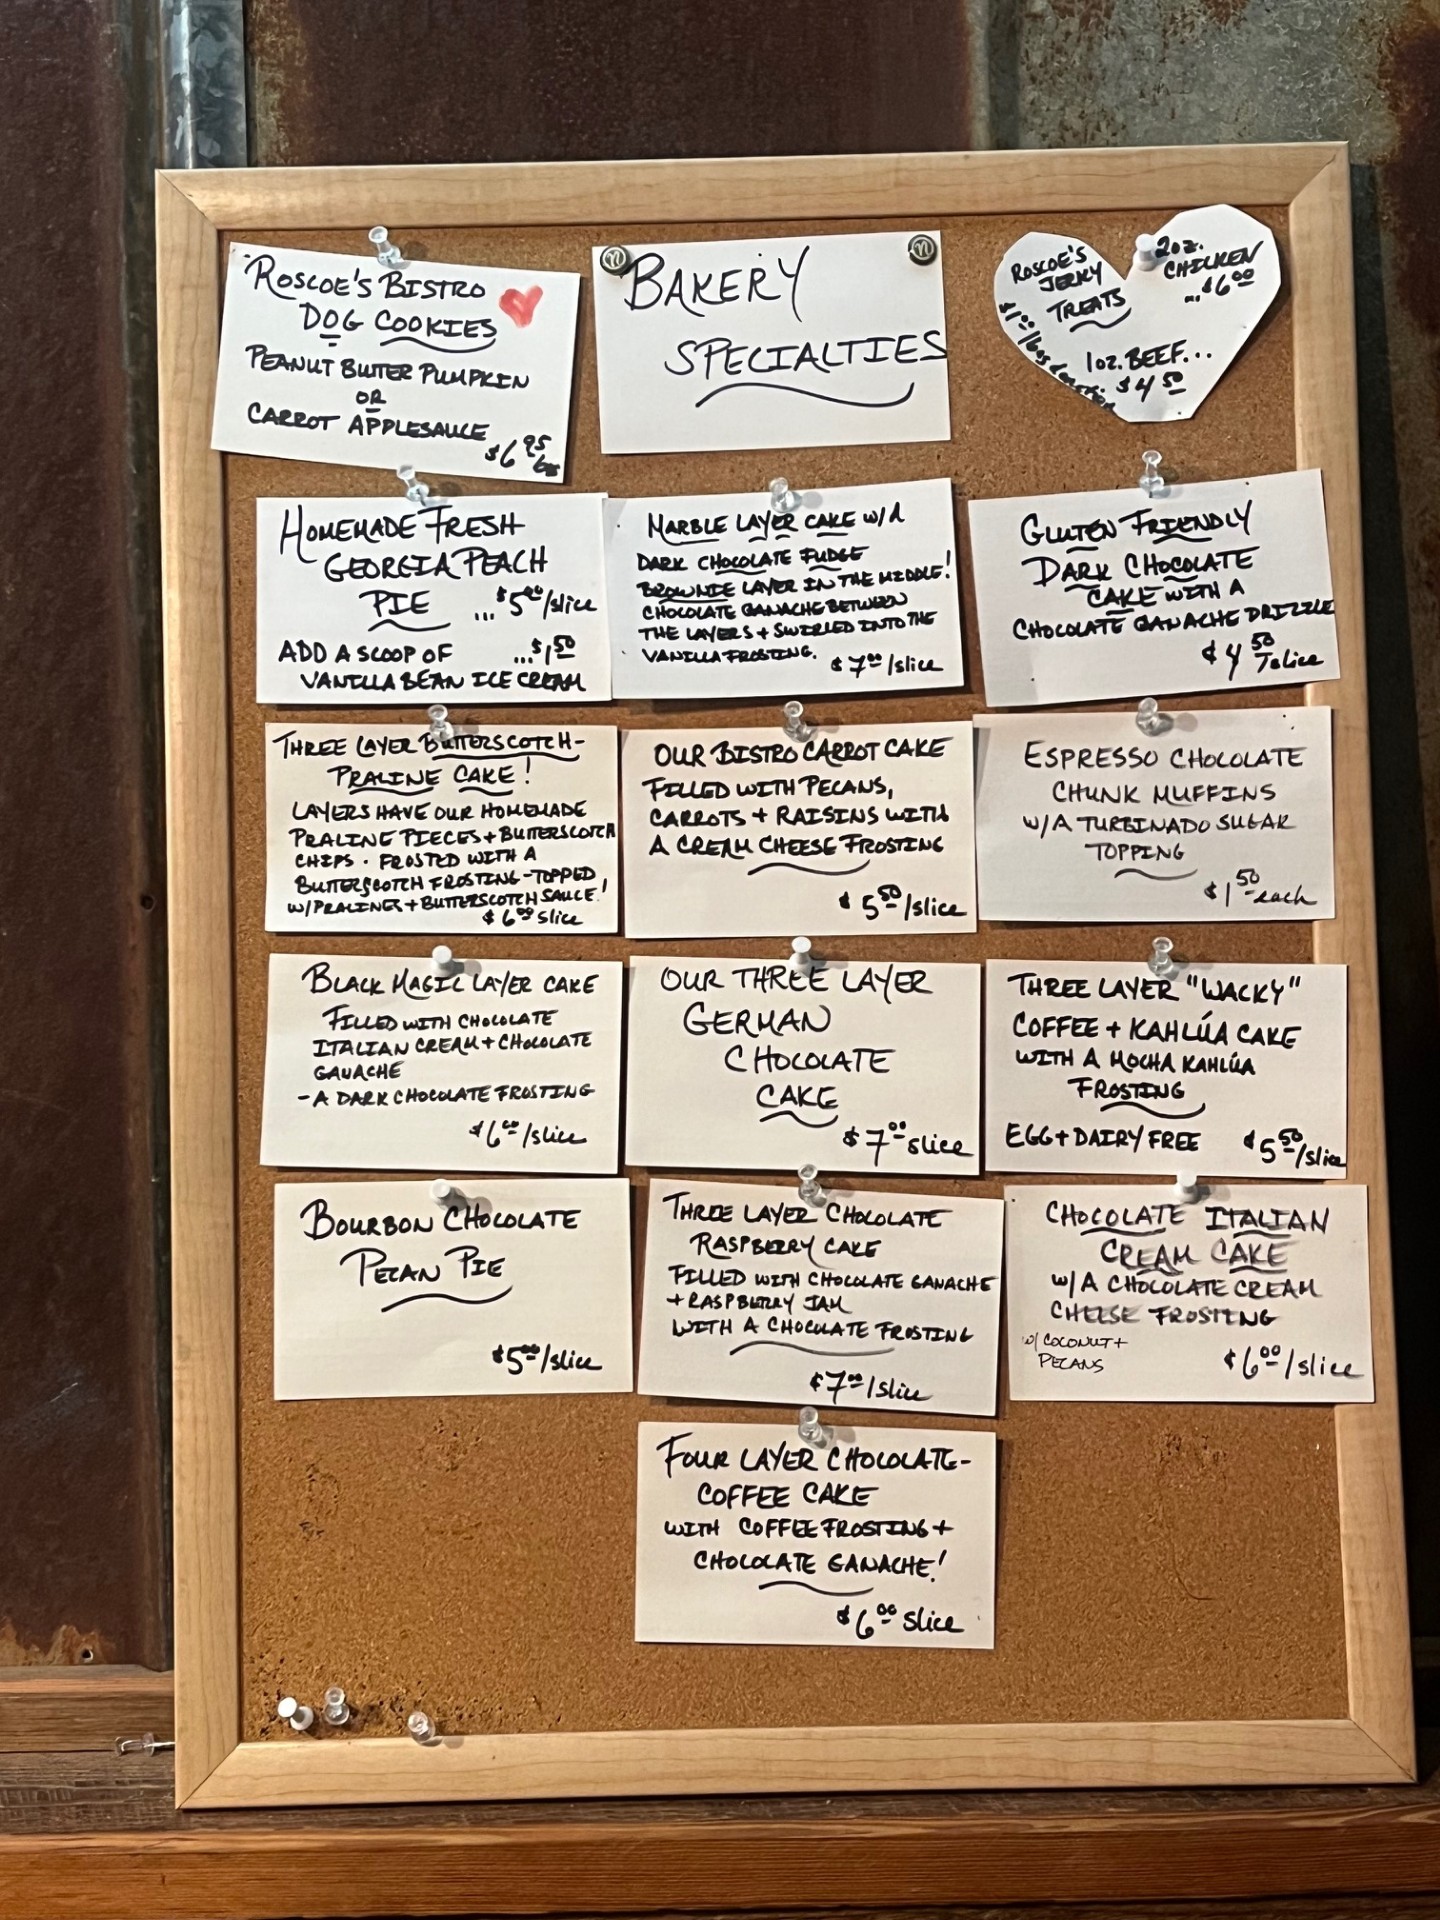 ROSCOE'S BISTRO
DOG COOKIES
PEANUT BUTTER PUMPKIN
OR
CARROT APPLESAUCE
$6.95
BAKERY
SPECIALTIES
ROSCOE'S
JERKY
TREATS
2oz.
CHICKEN
...$6.00
1oz. BEEF...
$4.50
HOMEMADE FRESH
GEORGIA PEACH
PIE ... $5.00/slice
ADD A SCOOP OF ...$1.50
VANILLA BEAN ICE CREAM
MARBLE LAYER CAKE W/A
DARK CHOCOLATE FUDGE
BROWNIE LAYER IN THE MIDDLE!
CHOCOLATE GANACHE BETWEEN
THE LAYERS + SWIRLED INTO THE
VANILLA FROSTING.
$7.00/slice
GLUTEN FRIENDLY
DARK CHOCOLATE
CAKE WITH A
CHOCOLATE GANACHE DRIZZLE
$4.50/slice
THREE LAYER BUTTERSCOTCH-
PRALINE CAKE!
LAYERS HAVE OUR HOMEMADE
PRALINE PIECES + BUTTERSCOTCH
CHIPS. FROSTED WITH A
BUTTERSCOTCH FROSTING-TOPPED
W/PRALINES + BUTTERSCOTCH SAUCE!
$6.00 slice
OUR BISTRO CARROT CAKE
FILLED WITH PECANS,
CARROTS + RAISINS WITH
A CREAM CHEESE FROSTING
$5.50/slice
ESPRESSO CHOCOLATE
CHUNK MUFFINS
W/A TURBINADO SUGAR
TOPPING
$1.50 each
BLACK MAGIC LAYER CAKE
FILLED WITH CHOCOLATE
ITALIAN CREAM + CHOCOLATE
GANACHE
- A DARK CHOCOLATE FROSTING
$6.00/slice
OUR THREE LAYER
GERMAN
CHOCOLATE
CAKE
$7.00 slice
THREE LAYER "WACKY"
COFFEE + KAHLÚA CAKE
WITH A MOCHA KAHLÚA
FROSTING
EGG + DAIRY FREE $5.50/slice
BOURBON CHOCOLATE
PECAN PIE
$5.00/slice
THREE LAYER CHOCOLATE
RASPBERRY CAKE
FILLED WITH CHOCOLATE GANACHE
+ RASPBERRY JAM
WITH A CHOCOLATE FROSTING
$7.00/slice
CHOCOLATE ITALIAN
CREAM CAKE
W/A CHOCOLATE CREAM
CHEESE FROSTING
W/ COCONUT +
PECANS
$6.00/slice
FOUR LAYER CHOCOLATE-
COFFEE CAKE
WITH COFFEE FROSTING +
CHOCOLATE GANACHE!
$6.00 slice